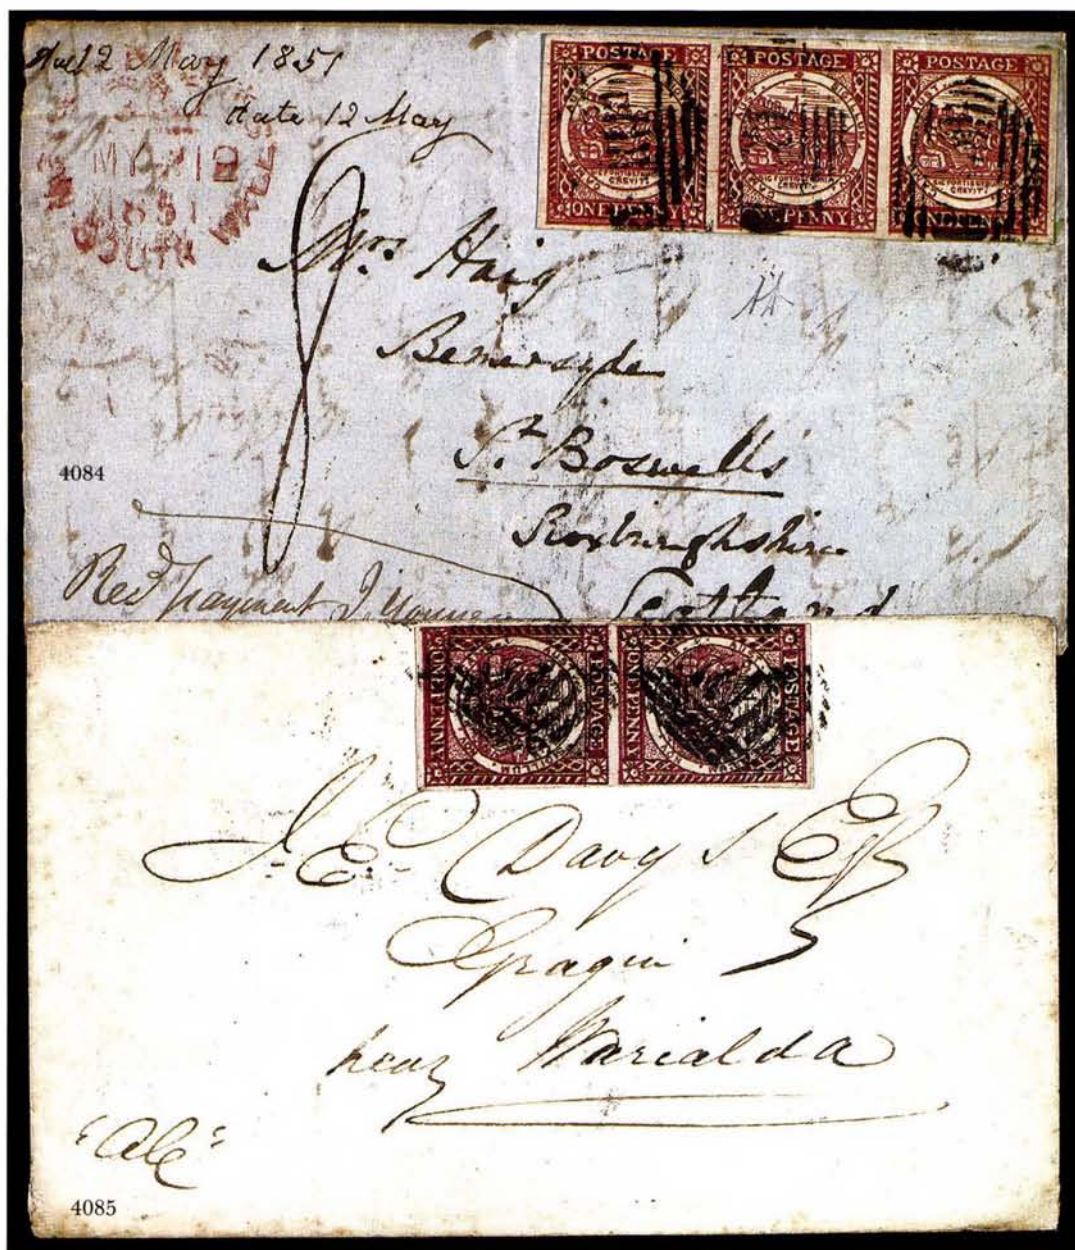 2 May 1851
date 12 May
MY 12
1851
SOUTH WALE
POSTAGE POSTAGE POSTAGE
ONE PENNY NE PENNY NE PENNY
8
Mrs Haig
Bemersyde
St. Boswells
Roxburghshire
Scotland
4084
Recd payment
POSTAGE POSTAGE
ONE PENNY ONE PENNY
J. E. Davys Esq
near Warialda
4085